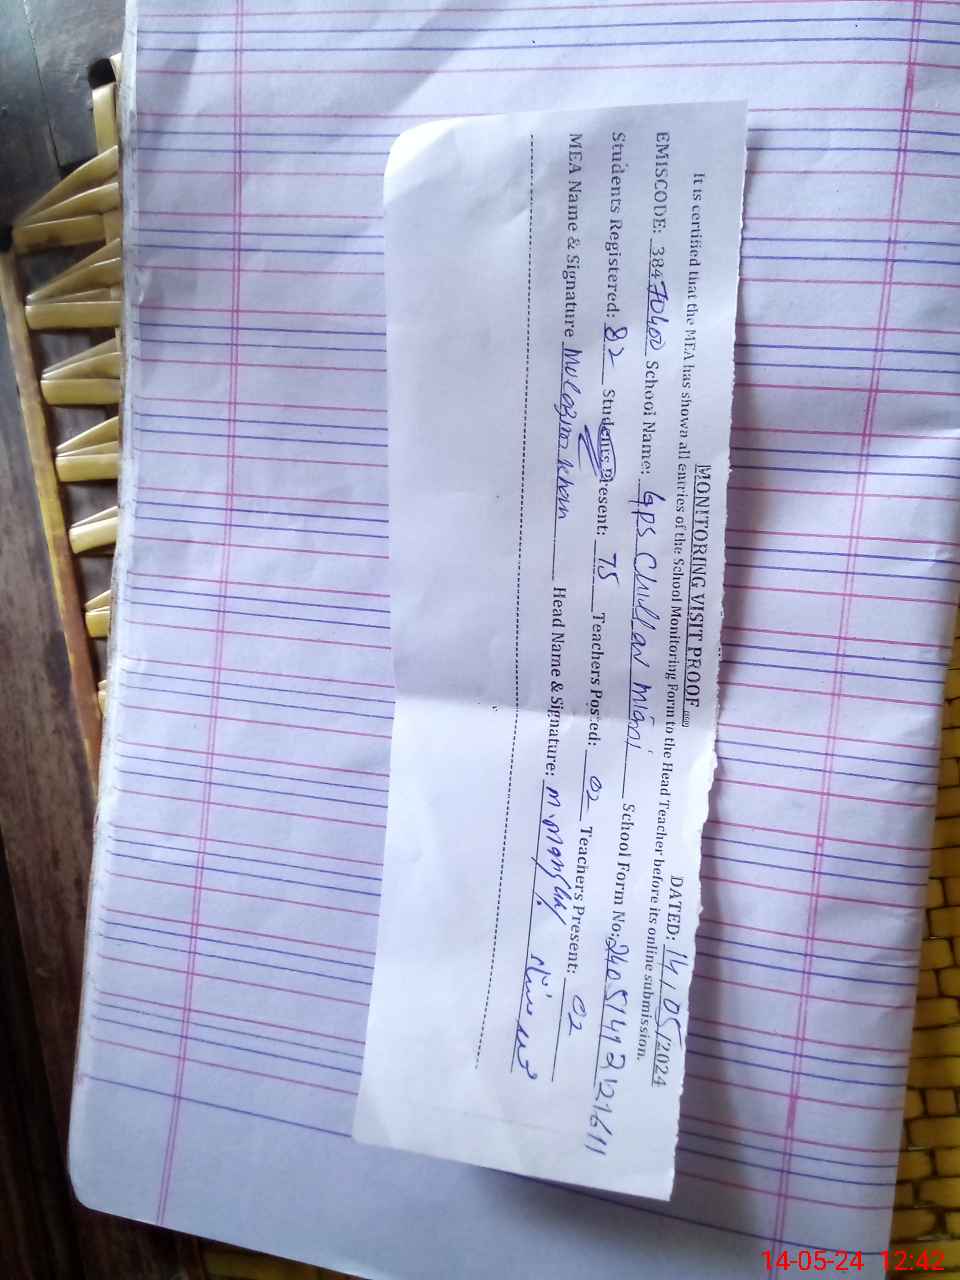 MONITORING VISIT PROOF
DATED: 14/05/2024
It is certified that the MEA has shown all entries of the School Monitoring Form to the Head Teacher before its online submission.
EMISCODE: 38470400 School Name: GPS Chullan miani School Form No:
Students Registered: 82 Students Present: 75 Teachers Posted: 02 Teachers Present: 02
MEA Name & Signature khan Head Name & Signature:
14-05-24 12:42